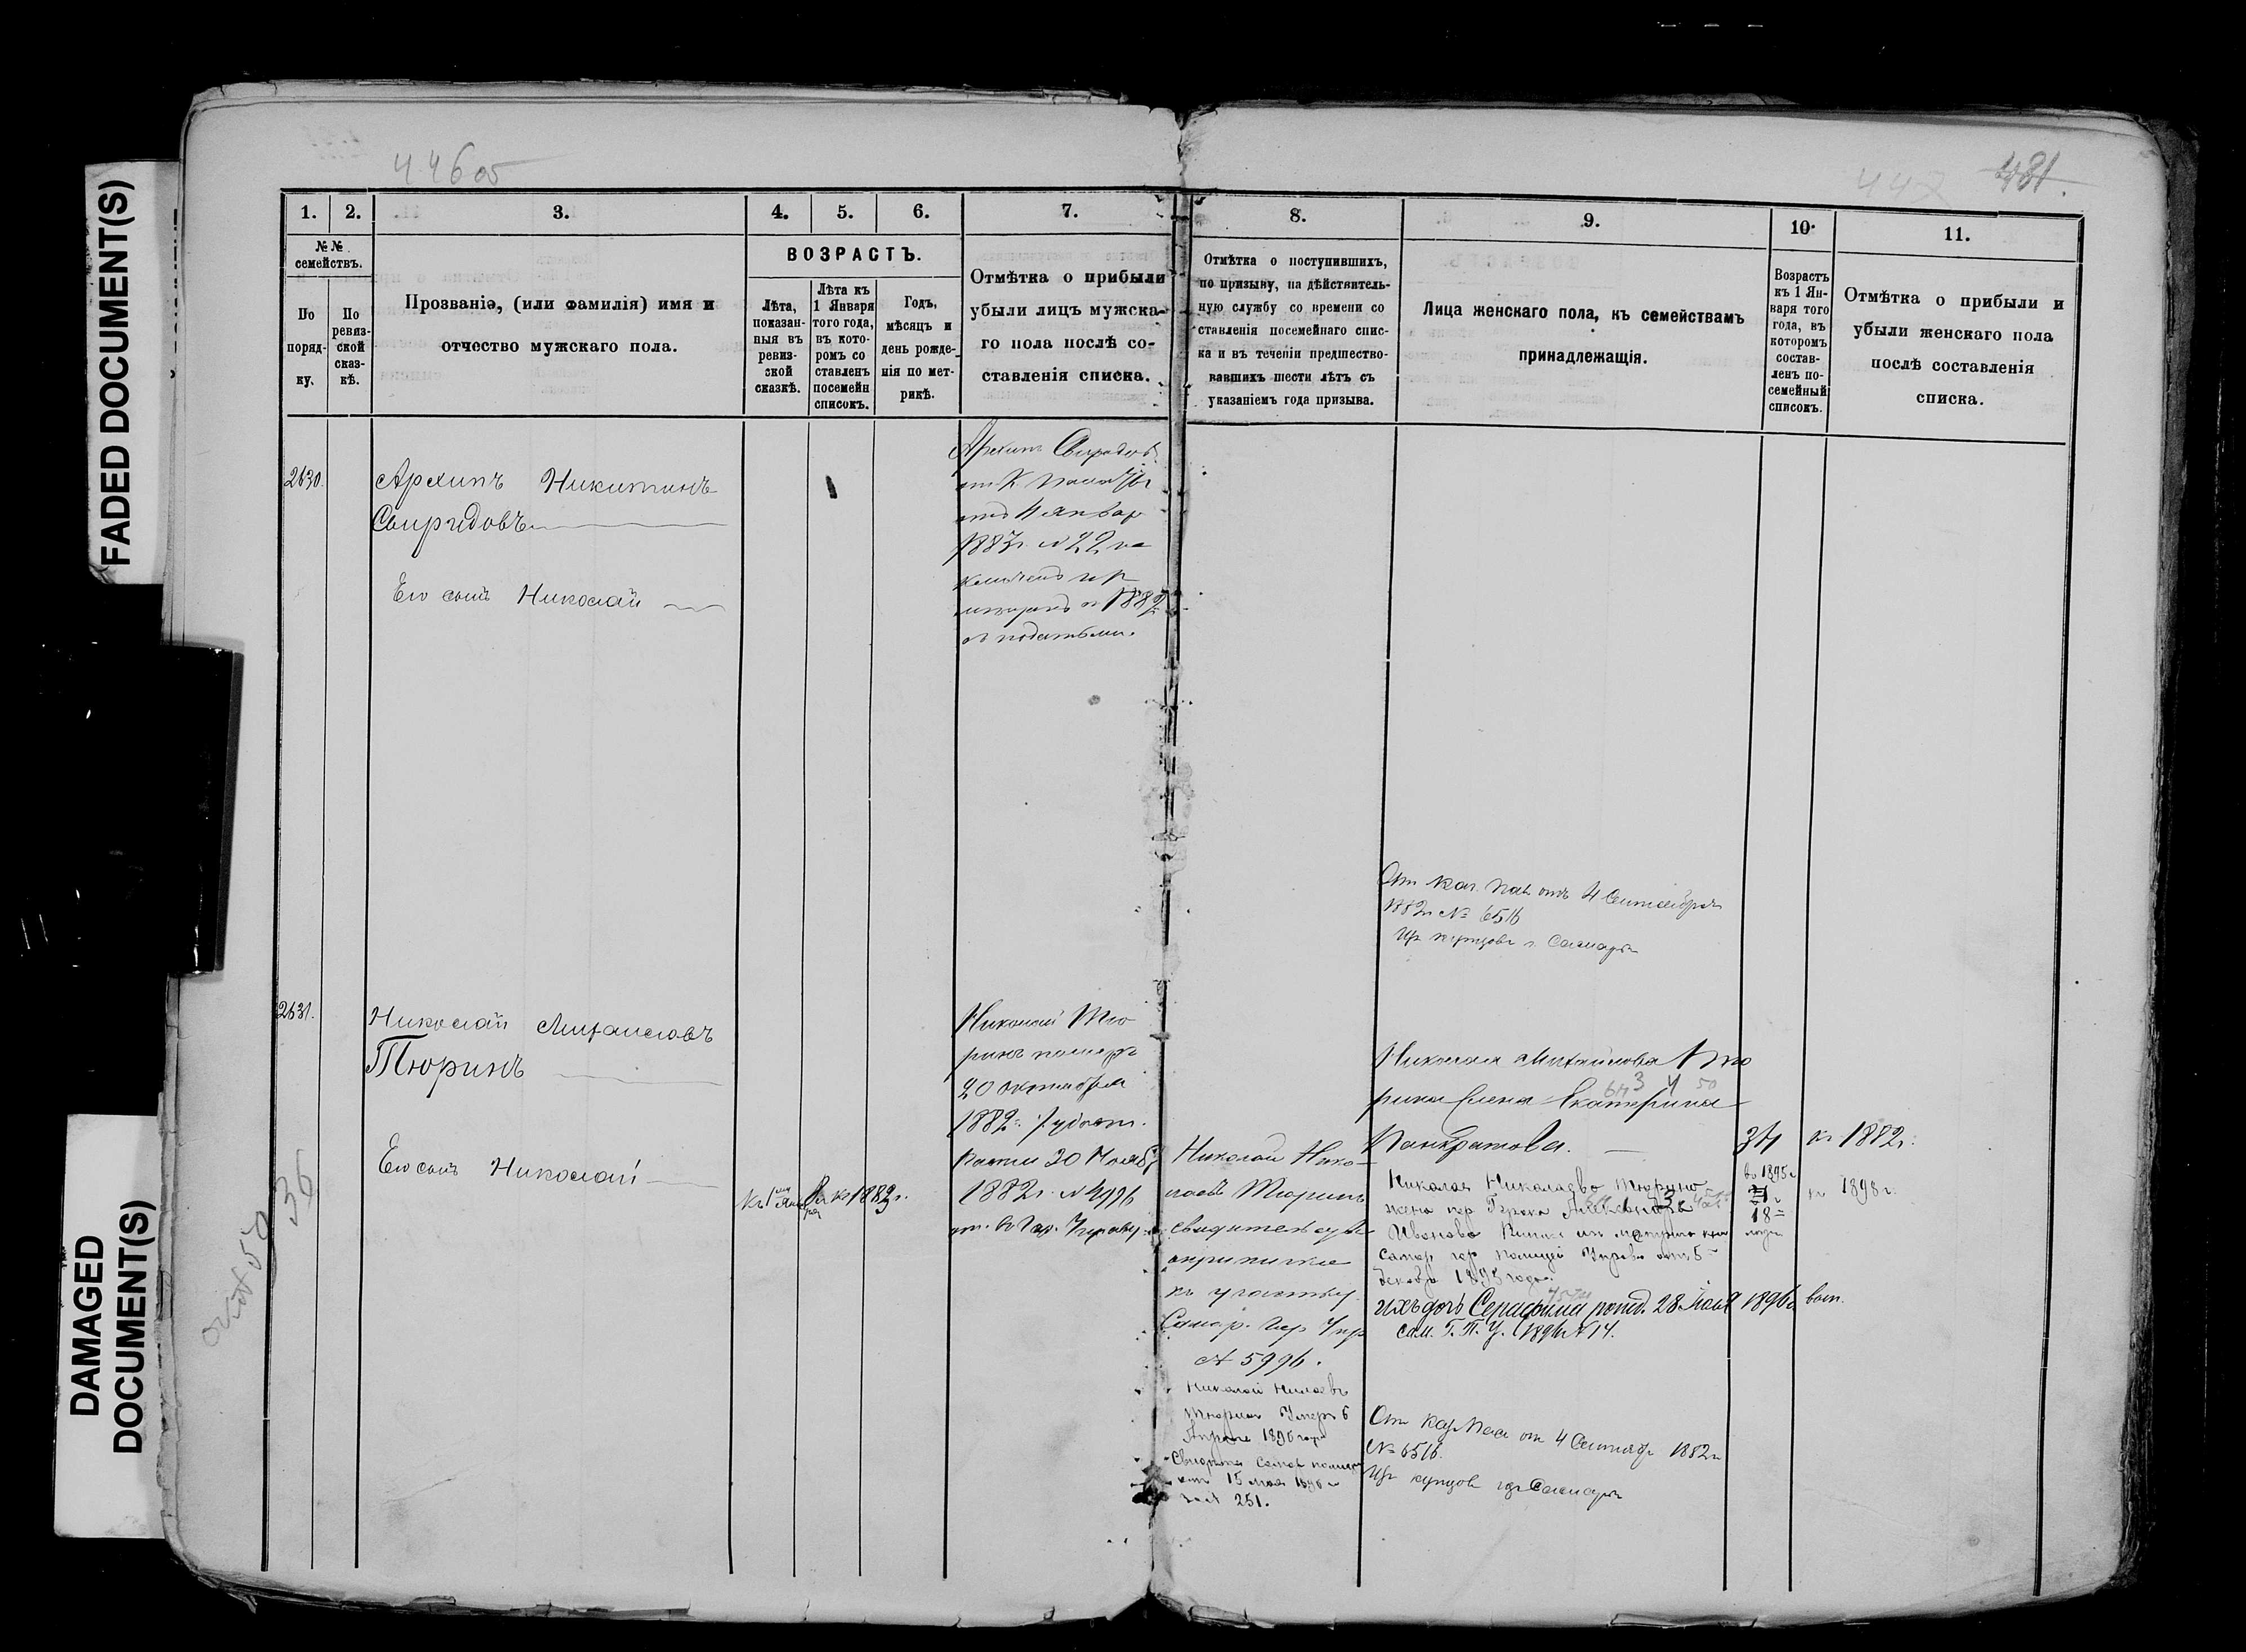 FADED DOCUMENT(S)
DAMAGED
DOCUMENT(S)
446 об
447 481.
1. 2. 3. 4. 5. 6. 7.
№№
семействъ.
По
поряд-
ку.
По
ревиз-
ской
сказ-
кѣ.
Прозваніе, (или фамилія) имя и
отчество мужскаго пола.
ВОЗРАСТЪ.
Лѣта,
показан-
ныя въ
ревиз-
ской
сказкѣ.
Лѣта къ
1 Января
того года,
въ кото-
ромъ со
ставленъ
посемейн
списокъ.
Годъ,
мѣсяцъ и
день рожде-
нія по мет-
рикѣ.
Отмѣтка о прибыли
убыли лицъ мужска-
го пола послѣ со-
ставленія списка.
8. 9. 10. 11.
Отмѣтка о поступившихъ,
по призыву, на дѣйствитель-
ную службу со времени со
ставленія посемейнаго спис-
ка и въ теченіи предшество-
вавшихъ шести лѣтъ съ
указаніемъ года призыва.
Лица женскаго пола, къ семействамъ
принадлежащія.
Возрастъ
къ 1 Ян-
варя того
года, въ
которомъ
состав-
ленъ по-
семейный
списокъ.
Отмѣтка о прибыли и
убыли женскаго пола
послѣ составленія
списка.
2630.
Архипъ Никитинъ
Свиридовъ
Его сынъ Николай
Архипъ Свиридовъ
отъ 4 Январ
1883г. № 22
1882
съ податьми.
От Каз. Пал. отъ 4 Сентября
1882г. № 6516
Из купцовъ г. Самары
2631.
Николай Михаиловъ
Тюринъ
Его сынъ Николай
къ 1 Января
къ 1883г.
Николай Тю
ринъ померъ
20 октября
1882г.
30 Ноябр
1882г. №
Николай Нико-
лаевъ Тюринъ
свидетельств
о приписке
къ участку
Самар. Гор Упр
№ 5996.
Николай Никлаевъ
Тюринъ Умеръ 6
Апреля 1896 года
15 мая 1896 г
за № 251.
Николая Михайлова Тю
рина Елена Екатерина
Панкратова.
34 къ 1882г.
Николая Николаево Тюрина
жена
Иванова
Самар. гор полицей Управ отъ 5
декабр 1895 года.
въ 1895 г
18
1898 г.
ихъ дочь Серафима рожд. 28 Іюля 1896 г.
Сам. Г. П. У. 1896 № 14.
От Каз Пал от 4 Сентябр 1882 г
№ 6516.
Из купцов гор Самары